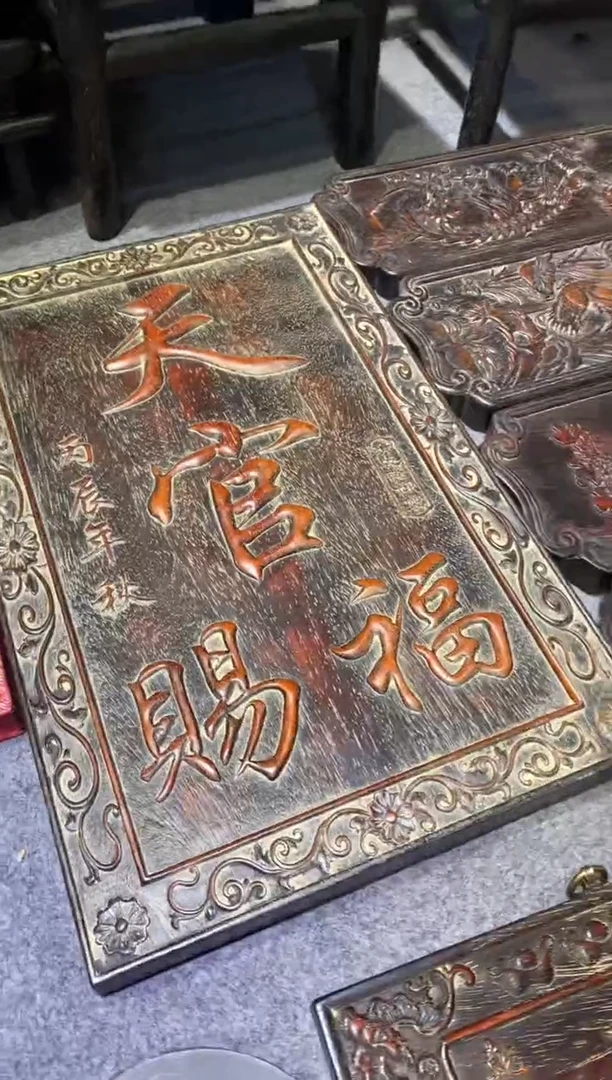 天官賜福
丙辰年秋